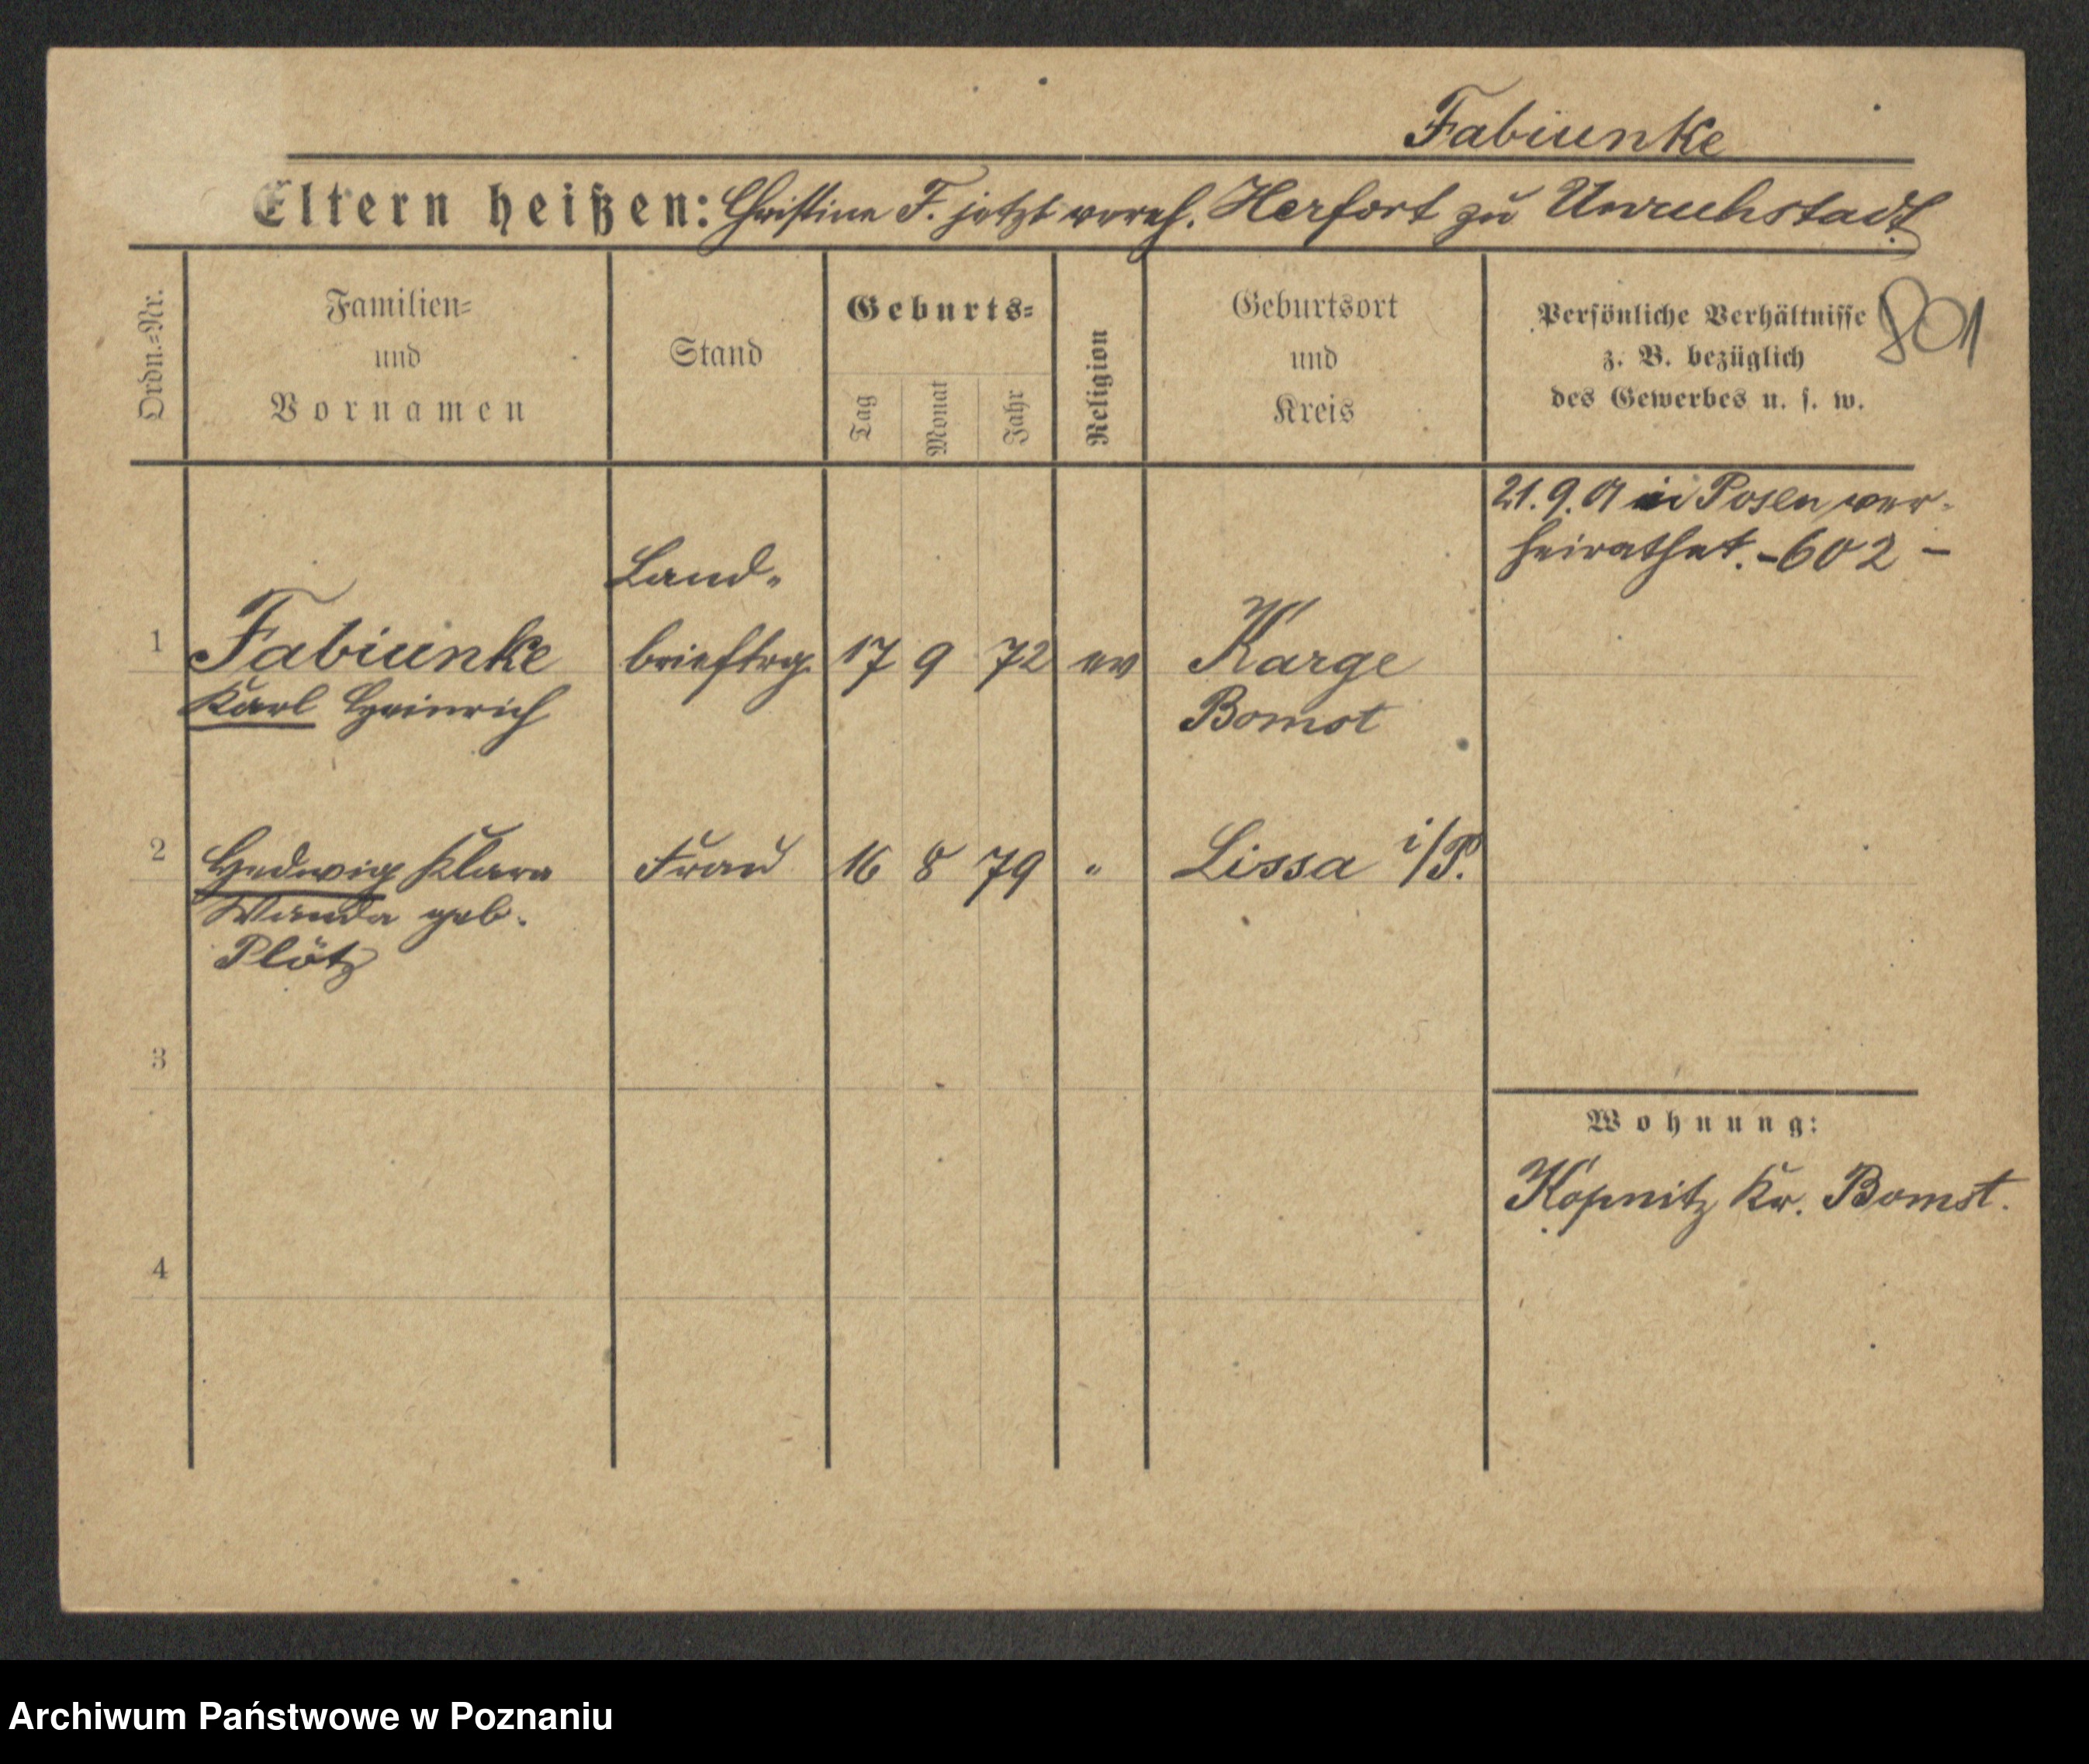 Fabiunke
Eltern heißen: Christine F. jetzt vereh. Herfort zu Unruhstadt.
Ordn.-Nr.
Familien-
und
Vornamen
Stand
Geburts-
Tag
Monat
Jahr
Religion
Geburtsort
und
Kreis
Persönliche Verhältnisse
z. B. bezüglich
des Gewerbes u. s. w.
801
21.9.01 in Posen ver-
heirathet. -602-
Land-
1 Fabiunke brieftrg. 17 9 72 ev Karge
Karl Heinrich Bomst
2 Hedwig Klara Frau 16 8 79 " Lissa i/P.
Wanda geb.
Plötz
3
Wohnung:
Kopnitz Kr. Bomst.
4
Archiwum Państwowe w Poznaniu